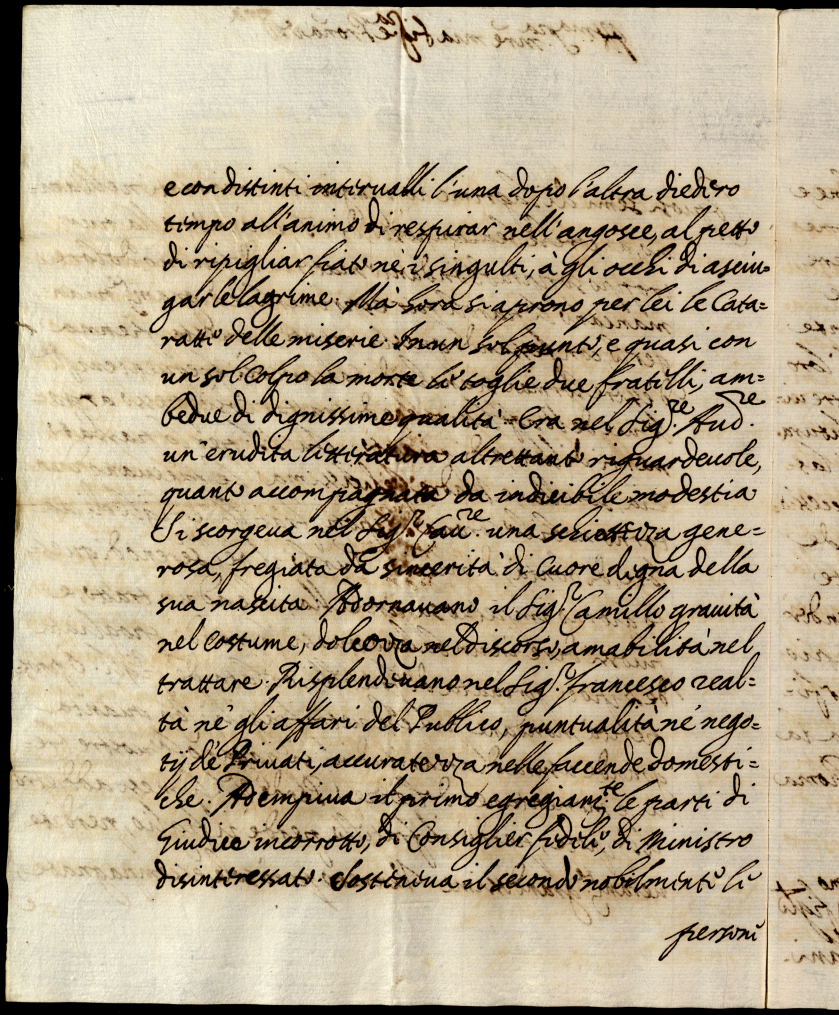 e con distinti interualli l'una dopo l'altra diedero
tempo all'animo di respirar nell'angosce, al petto
di ripigliar fiato ne i singulti, à gli occhi di asciu=
gar le lagrime. Mà hora si aprono per lei le Cata=
ratte delle miserie. In un sol punto, e quasi con
un sol Colpo la morte li toglie due fratelli, am=
bedue di dignissime qualità. Era nel Sig.re Aud.re
un'erudita litteratura altrettanto riguardeuole,
quanto accompagnata da indicibile modestia
Si scorgeua nel Sig.r Cau.re una schiettezza gene=
rosa, fregiata da sincerità di Cuore degna della
sua nascita. Adornauano il Sig.r Camillo grauità
nel costume, dolcezza nel discorso, amabilità nel
trattare. Risplendeuano nel Sig.r francesco real=
tà ne' gli affari del Publico, puntualità ne' nego=
tij de' Priuati, accuratezza nelle faccende domesti=
che. Adempiua il primo egregiam.te le parti di
Giudice incorrotto, di Consiglier fedele, di Ministro
disinteressato. Sosteneua il secondo nobilmente le
persone